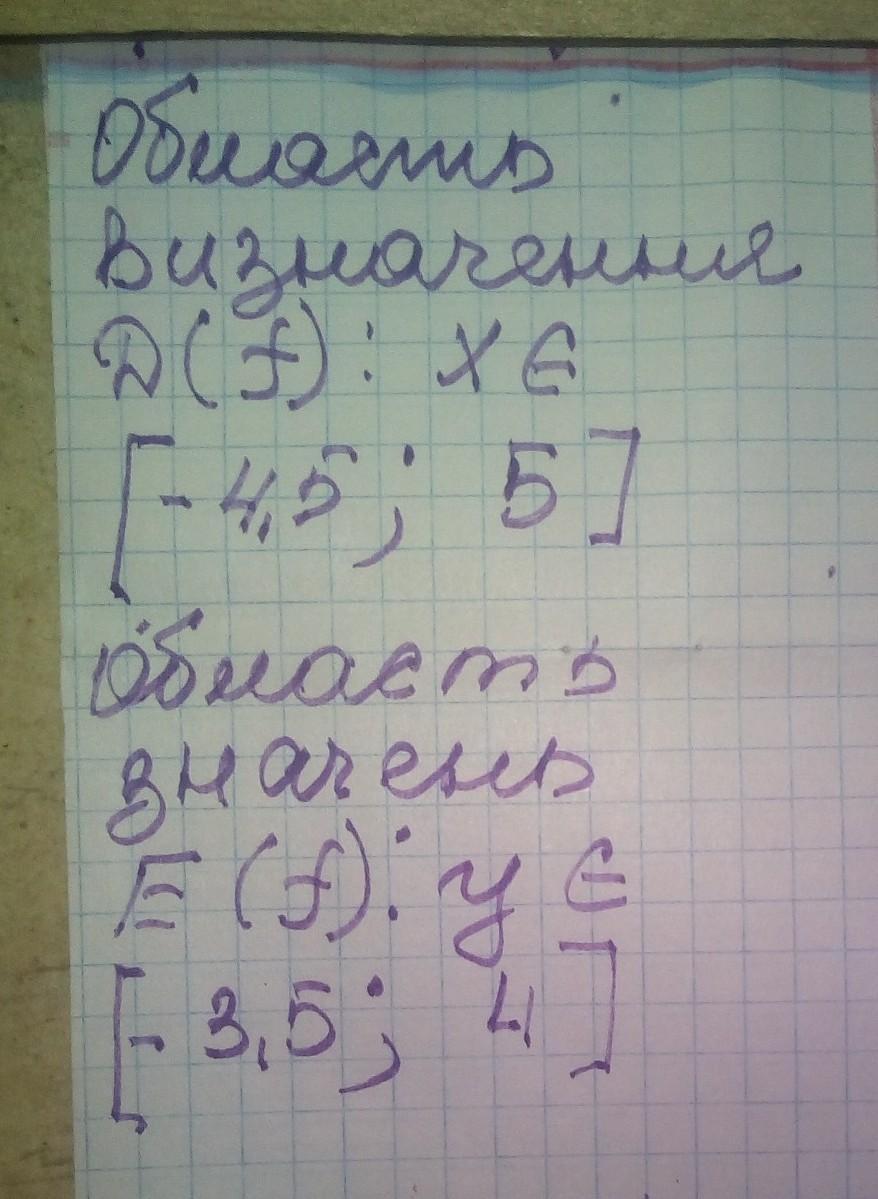 Область
визначення
D(f): x ∈
[-4,5; 5]
Область
значень
E(f): y ∈
[-3,5; 4]